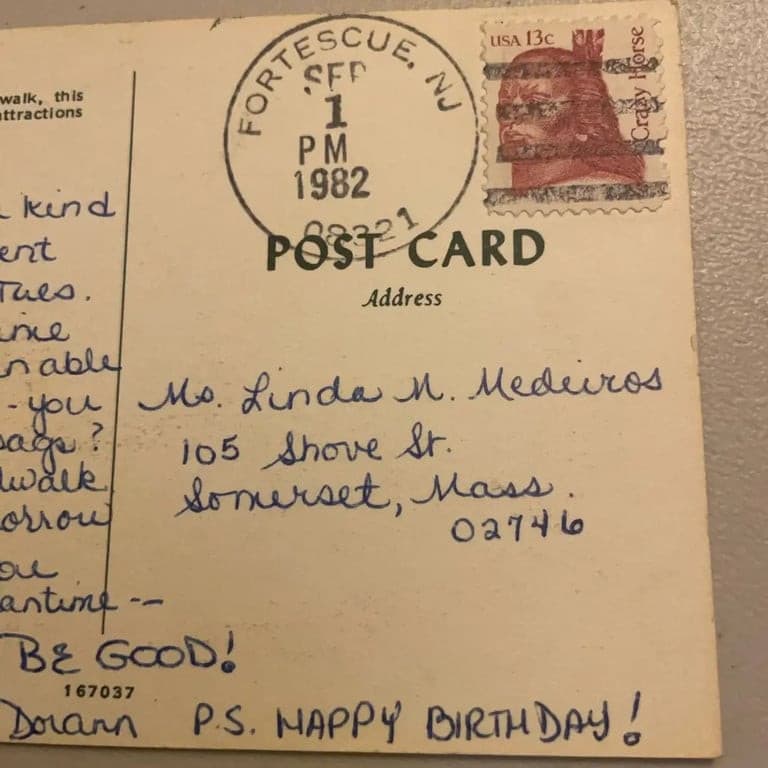 FORTESCUE, NJ
SEP
1
PM
1982
08321
USA 13c
Crazy Horse
walk, this
ttractions
POST CARD
Address
kind
ent
Tues.
ime
nable
- you
sage?
dwalk
orrow
ou
antime --
BE GOOD!
167037
Dorann P.S. HAPPY BIRTHDAY!
Ms. Linda M. Medeiros
105 Shove St.
Somerset, Mass.
02746